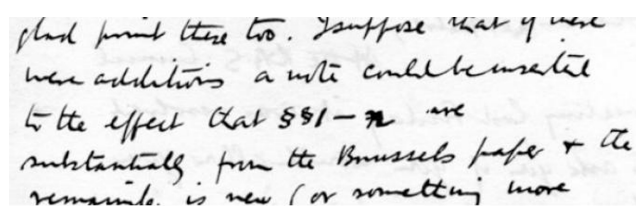 glad print these too. I suppose that if there
were additions a note could be inserted
to the effect that §§1 – n are
substantially from the Brussels paper + the
remainder is new (or something more